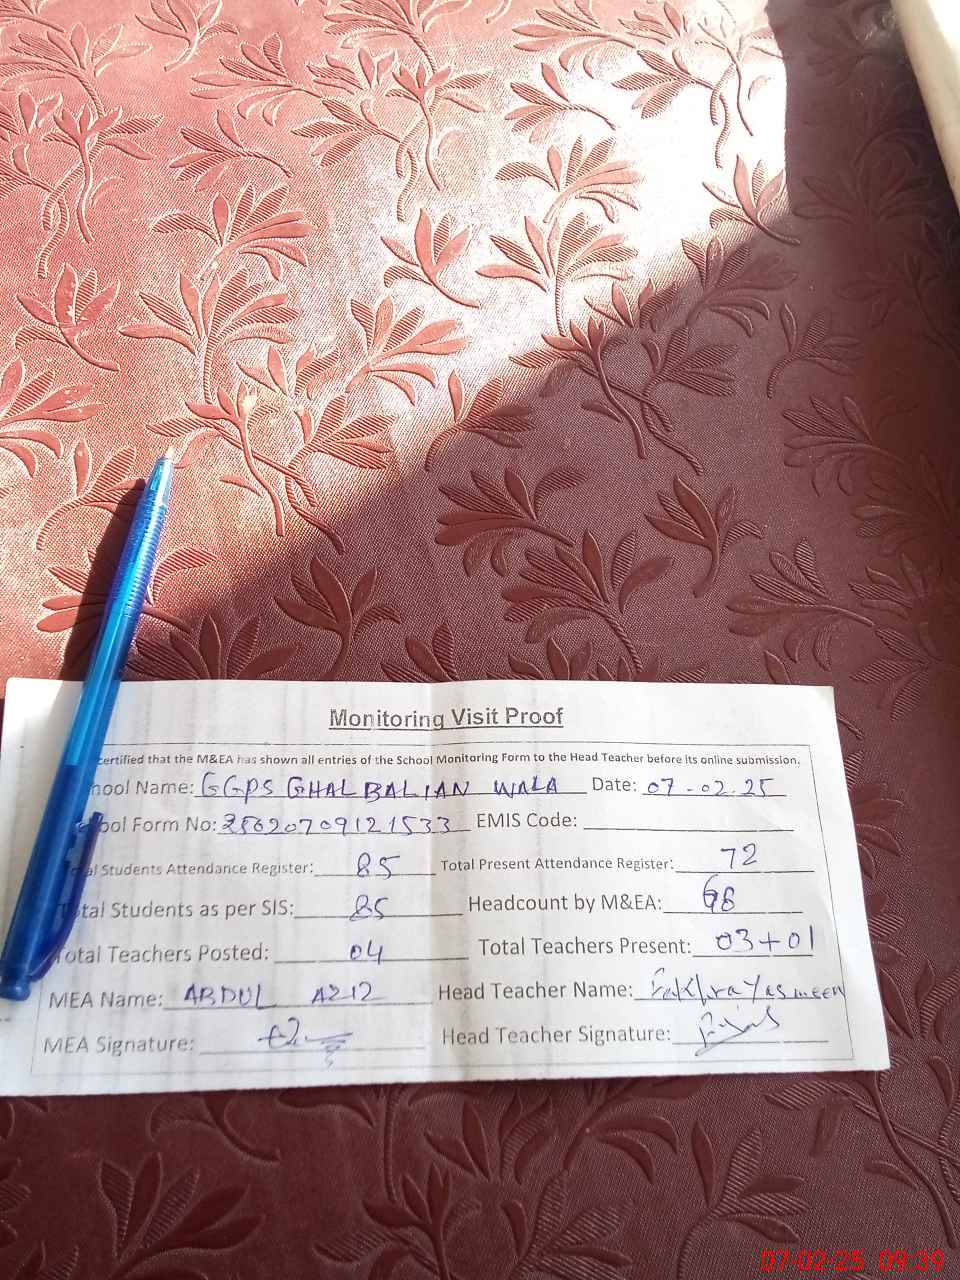 Monitoring Visit Proof
certified that the M&EA has shown all entries of the School Monitoring Form to the Head Teacher before its online submission.
hool Name: GGPS GHAL BALIAN WALA Date: 07-02-25
ool Form No: 25620709121533 EMIS Code:
Total Students Attendance Register: 85 Total Present Attendance Register: 72
Total Students as per SIS: 85 Headcount by M&EA: 68
Total Teachers Posted: 04 Total Teachers Present: 03+01
MEA Name: ABDUL AZIZ Head Teacher Name: Fakhra Yasmeen
MEA Signature: Head Teacher Signature:
07-02-25 09:39